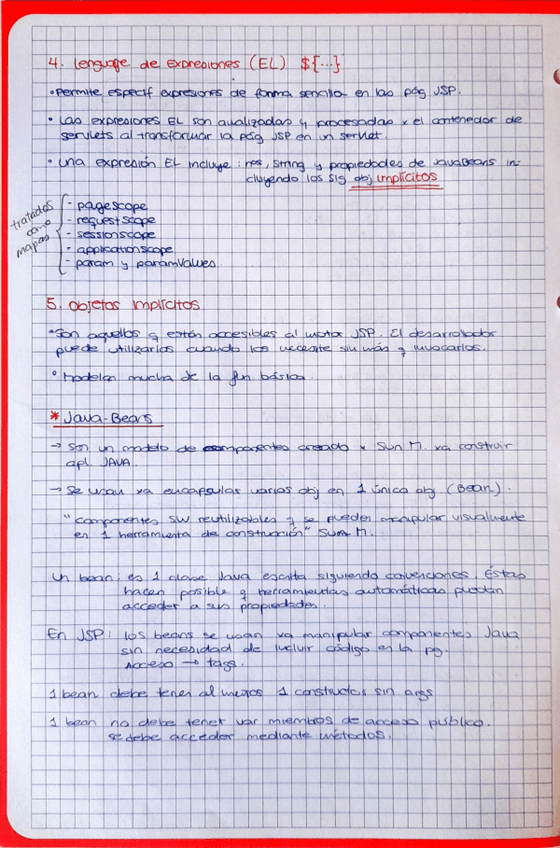 4. Lenguaje de Expresiones (EL) ${...}
• Permite especif expresiones de forma sencilla en las pág JSP.
• Las expresiones EL son analizadas y procesadas x el contenedor de
servlets al transformar la pág JSP en un servlet.
• Una expresión EL incluye: nos, String y propiedades de JavaBeans in
cluyendo los sig obj implícitos
tratados
como
mapas
- pageScope
- requestScope
- sessionScope
- applicationScope
- param y paramValues.
5. Objetos Implícitos
• Son aquellos q están accesibles al motor JSP. El desarrollador
puede utilizarlos cuando los necesite sin más q invocarlos.
• Modelan mucha de la fun básica.
* Java-Beans
→ Son un modelo de componentes creado x Sun M. xa construir
apl JAVA.
→ Se usan xa encapsular varios obj en 1 único obj (Bean).
"Componentes SW reutilizables q se pueden manipular visualmente
en 1 herramienta de construcción" Sun M.
Un bean: es 1 clase Java escrita siguiendo convenciones. Estas
hacen posible q herramientas automáticas puedan
acceder a sus propiedades.
En JSP: los beans se usan xa manipular componentes Java
sin necesidad de incluir código en la pg.
Acceso → tags.
1 bean debe tener al menos 1 constructor sin args
1 bean no debe tener var miembros de acceso público.
se debe acceder mediante métodos.